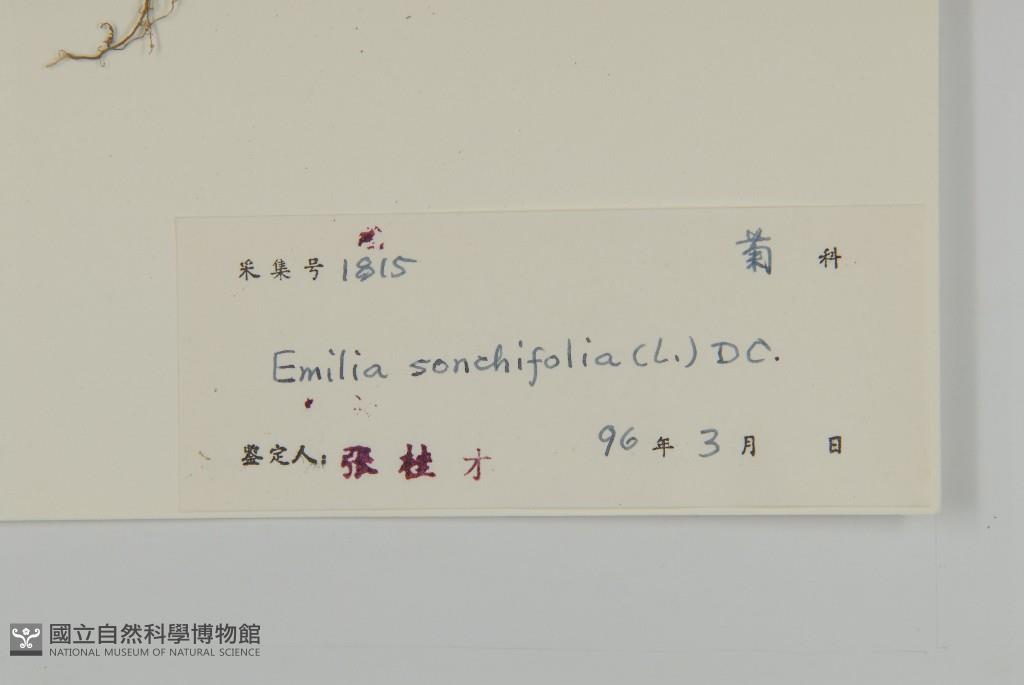 采集号 1815 菊 科
Emilia sonchifolia (L.) DC.
鉴定人: 張桂才 96 年 3 月 日
國立自然科學博物館
NATIONAL MUSEUM OF NATURAL SCIENCE